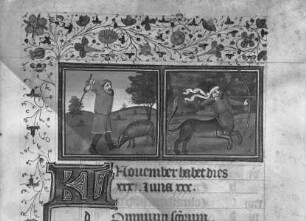 KL November habet dies
xxx. luna xxx.
d Omnium sctorum